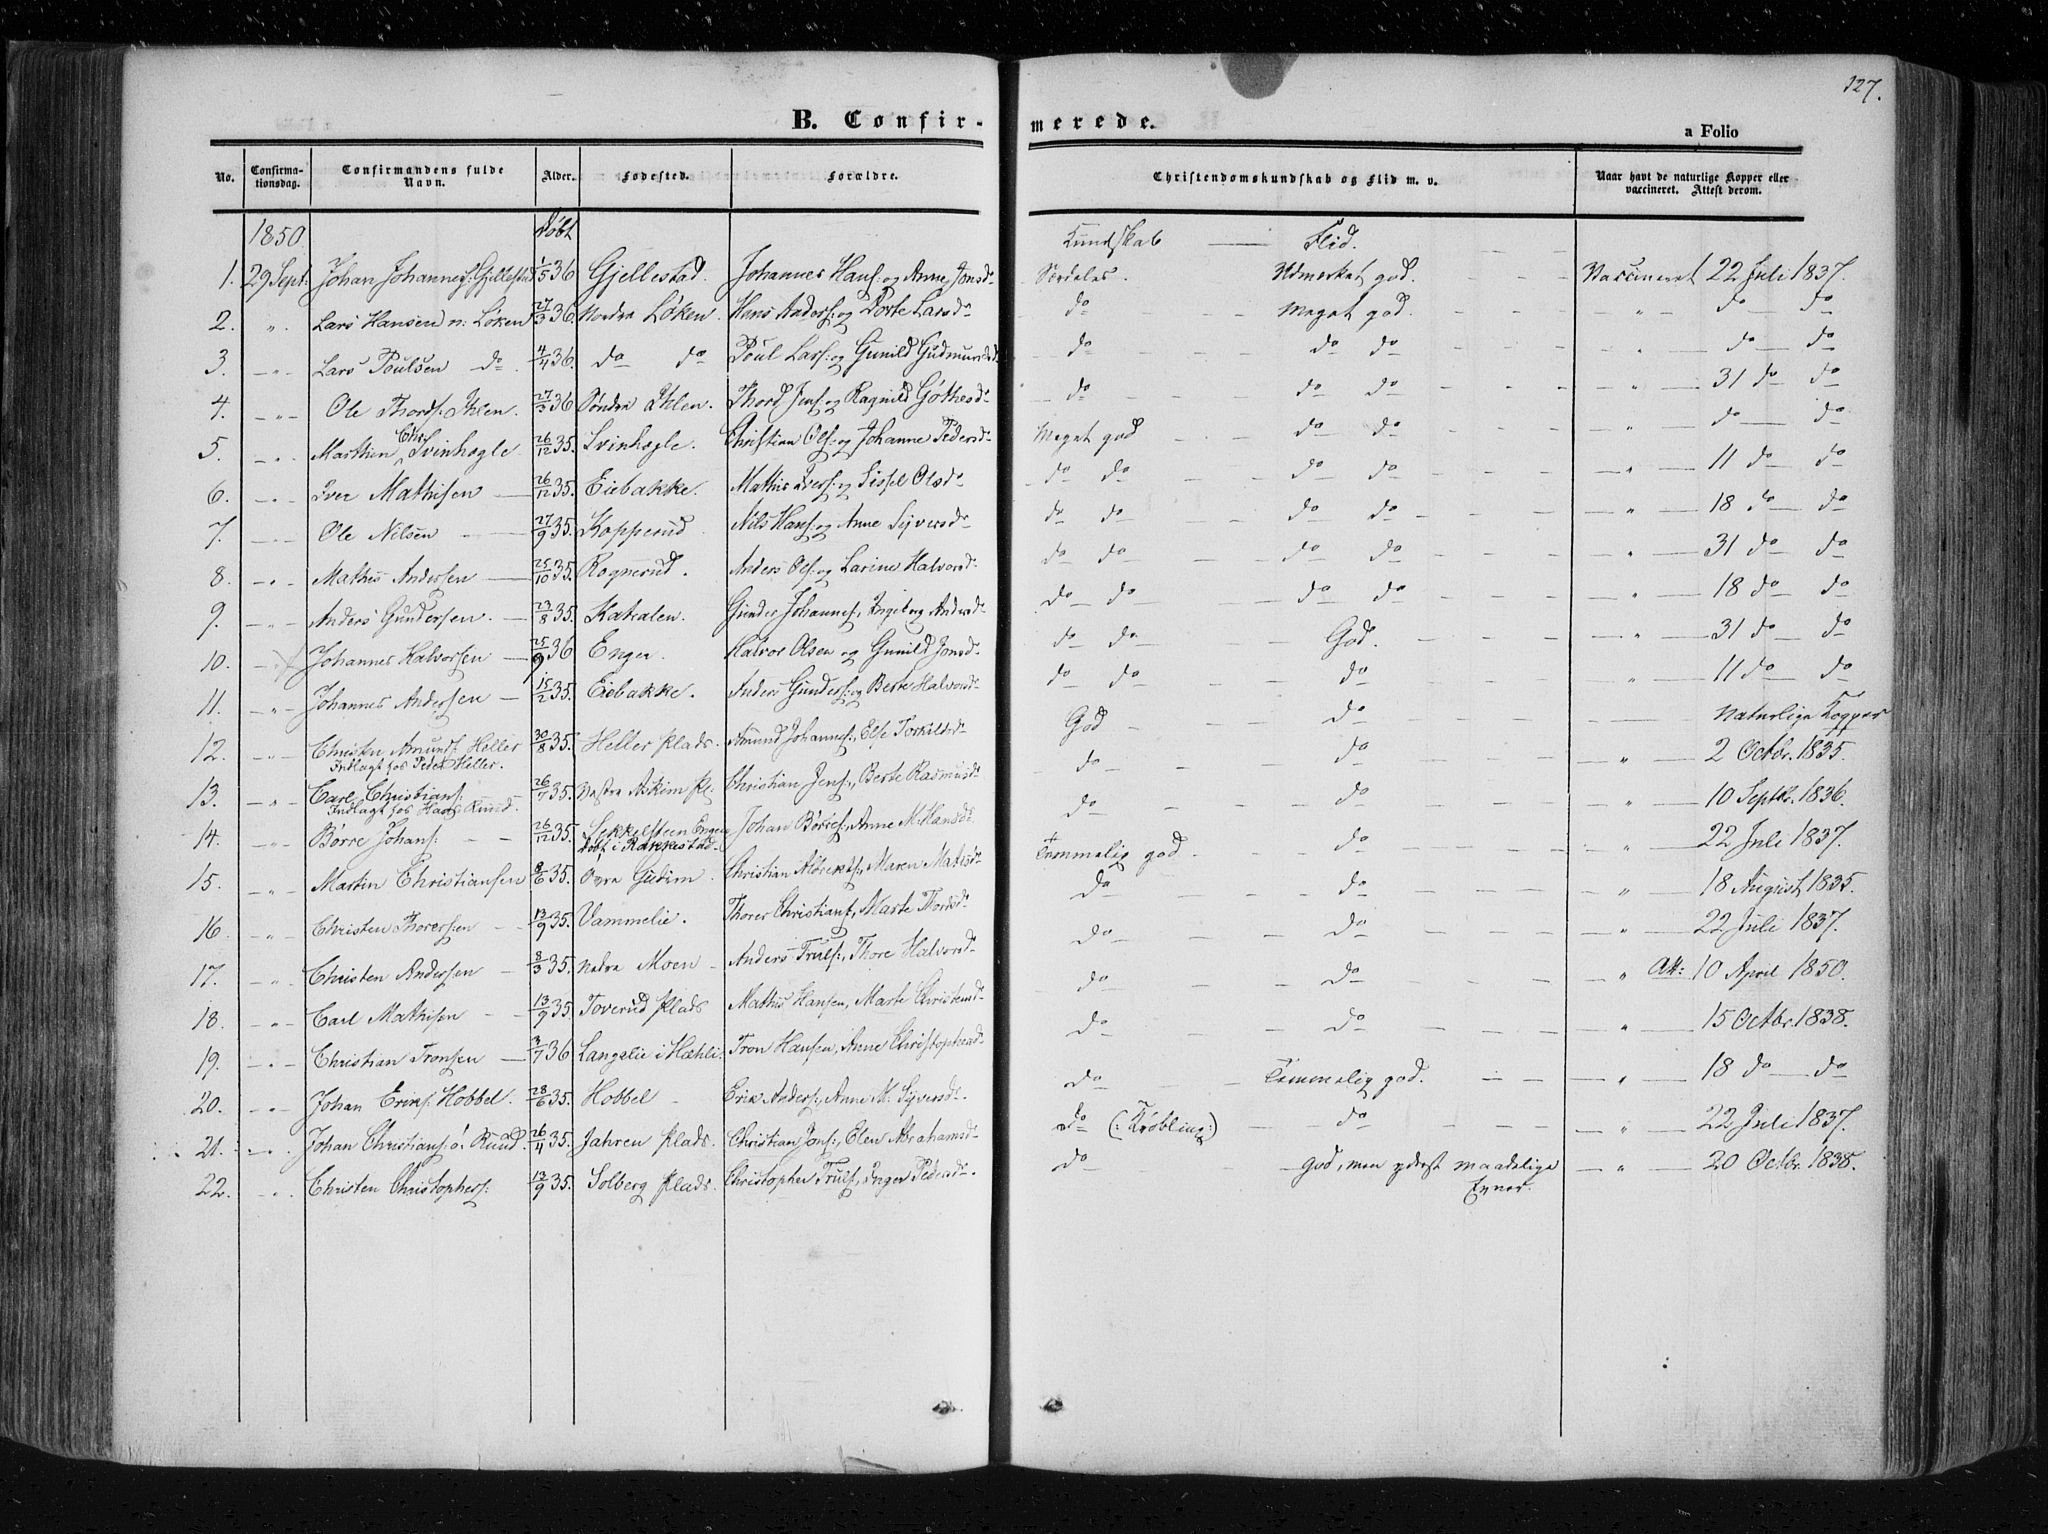 127.
B. Confir- merede.
a Folio
No. Confirma-tionsdag. Confirmandens fulde Navn. Alder. Fødested. Forældre. Christendomskundskab og Flid m. v. Naar havt de naturlige Kopper eller vaccineret. Attest derom.
1850. Døbt Kundskab — Flid.
1. 29 Sept: Johan Johannes: Gjellestad 1/5 36 Gjellestad. Johannes Hans: og Anne Jonsd- Særdeles. Udmerket god. Vaccineret 22 Juli 1837.
2. " Lars Hansen n: Løken 27/3 36. Nordra Løken. Hans Anders: og Dorte Larsd- do Meget god. " do do
3. " Lars Poulsen do 4/4 36. do do Poul Lars: og Gunild Gudmundsd- do do do " do do
4. " Ole Thords: Ihlen. 27/3 36 Søndra Ihlen. Thord Jens: og Ragnild Gøthesd- do do do " 31 do do
5. " Marthin Chr: Svinhøgle. 26/12 35. Svinhøgle. Christian Ols: og Johanne Pedersd- Meget god do do " do do
6. " Iver Mathisen 26/12 35. Eiebakke. Mathis Ivers: og Sissel Olsd- do do do do " 11 do do
7. " Ole Nilsen 27/9 35. Kopperud. Nils Hans: og Anne Syversd- do do do do " 18 do do
8. " Mathis Andersen 25/10 35. Rognerud. Anders Ols: og Larine Halvorsd- do do do do " 31 do do
9. " Anders Gundersen. 23/8 35. Katralen. Gunder Johannes:, Ingeborg Andersd- do do do do " 18 do do
10. " Johannes Halvorsen 25/9 36 Enger. Halvor Olsen og Gunild Jonsd- do do God. " 31 do do
11. " Johannes Andersen 15/2 35. Eiebakke. Anders Gunders: og Berte Halvorsd- do do do " 11 do do
12. " Christen Amunds: Heller 30/8 35. Heller plads. Amund Johannes:, Else Torkildsd- God do Naturlige Kopper
Indlagt hos Peder Heller.
13. " Carl Christians: 26/7 35. Vestra Askim pl: Christian Jens:, Berte Rasmusd- do do 2 Octbr. 1835.
Indlagt hos Hans Ruud.
14. " Børre Johans: 26/12 35. Sekkelsteen Enger Johan Børres:, Anne M. Hansd- do do " 10 Septbr. 1836.
Døbt i Rakkestad
15. " Martin Christiansen 8/6 35. Øvre Gudim. Christian Albrekts:, Maren Mathisd- Temmelig god. do " 22 Juli 1837.
16. " Christen Thoresen 13/9 35. Vammelie. Thorer Christians:, Marte Thordsd- do do " 18 August 1835.
17. " Christen Andersen 8/3 35. Nedre Moen Anders Truls:, Thore Halvorsd- do do " 22 Juli 1837.
18. " Carl Mathisen 13/9 35. Toverud plads Mathis Hansen, Marte Christensd- do do " Att: 10 April 1850.
19. " Christian Tronsen 3/7 36 Langelie i Hæhli. Tron Hansen, Anne Christophersd- do do " 15 Octbr. 1838.
20. " Johan Eriks: Hobbel. 28/6 35. Hobbel Erik Anders:, Anne M. Syversd-. do Temmelig god. " 18 do do
21. " Johan Christians: ø: Ruud. 26/4 35. Jahren plads. Christian Jons:, Elen Abrahamsd- do (: Krøbling:) do " 22 Juli 1837.
22. " Christen Christophers: 13/9 35. Solberg plads. Christopher Truls:, Inger Pedersd-. do God, men yderst maadelige Evner. " 20 Octbr. 1838.